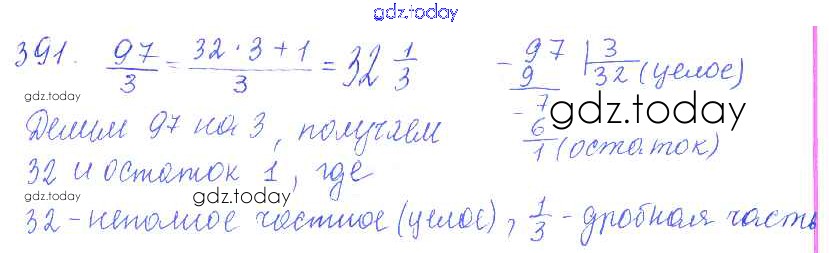 gdz.today
391. 97/3 = 32·3+1/3 = 32 1/3
- 97 | 3
9 32 (целое)
- 7
6
1 (остаток)
gdz.today
gdz.today
Делим 97 на 3, получаем
32 и остаток 1, где
gdz.today
32 - неполное частное (целое), 1/3 - дробная часть